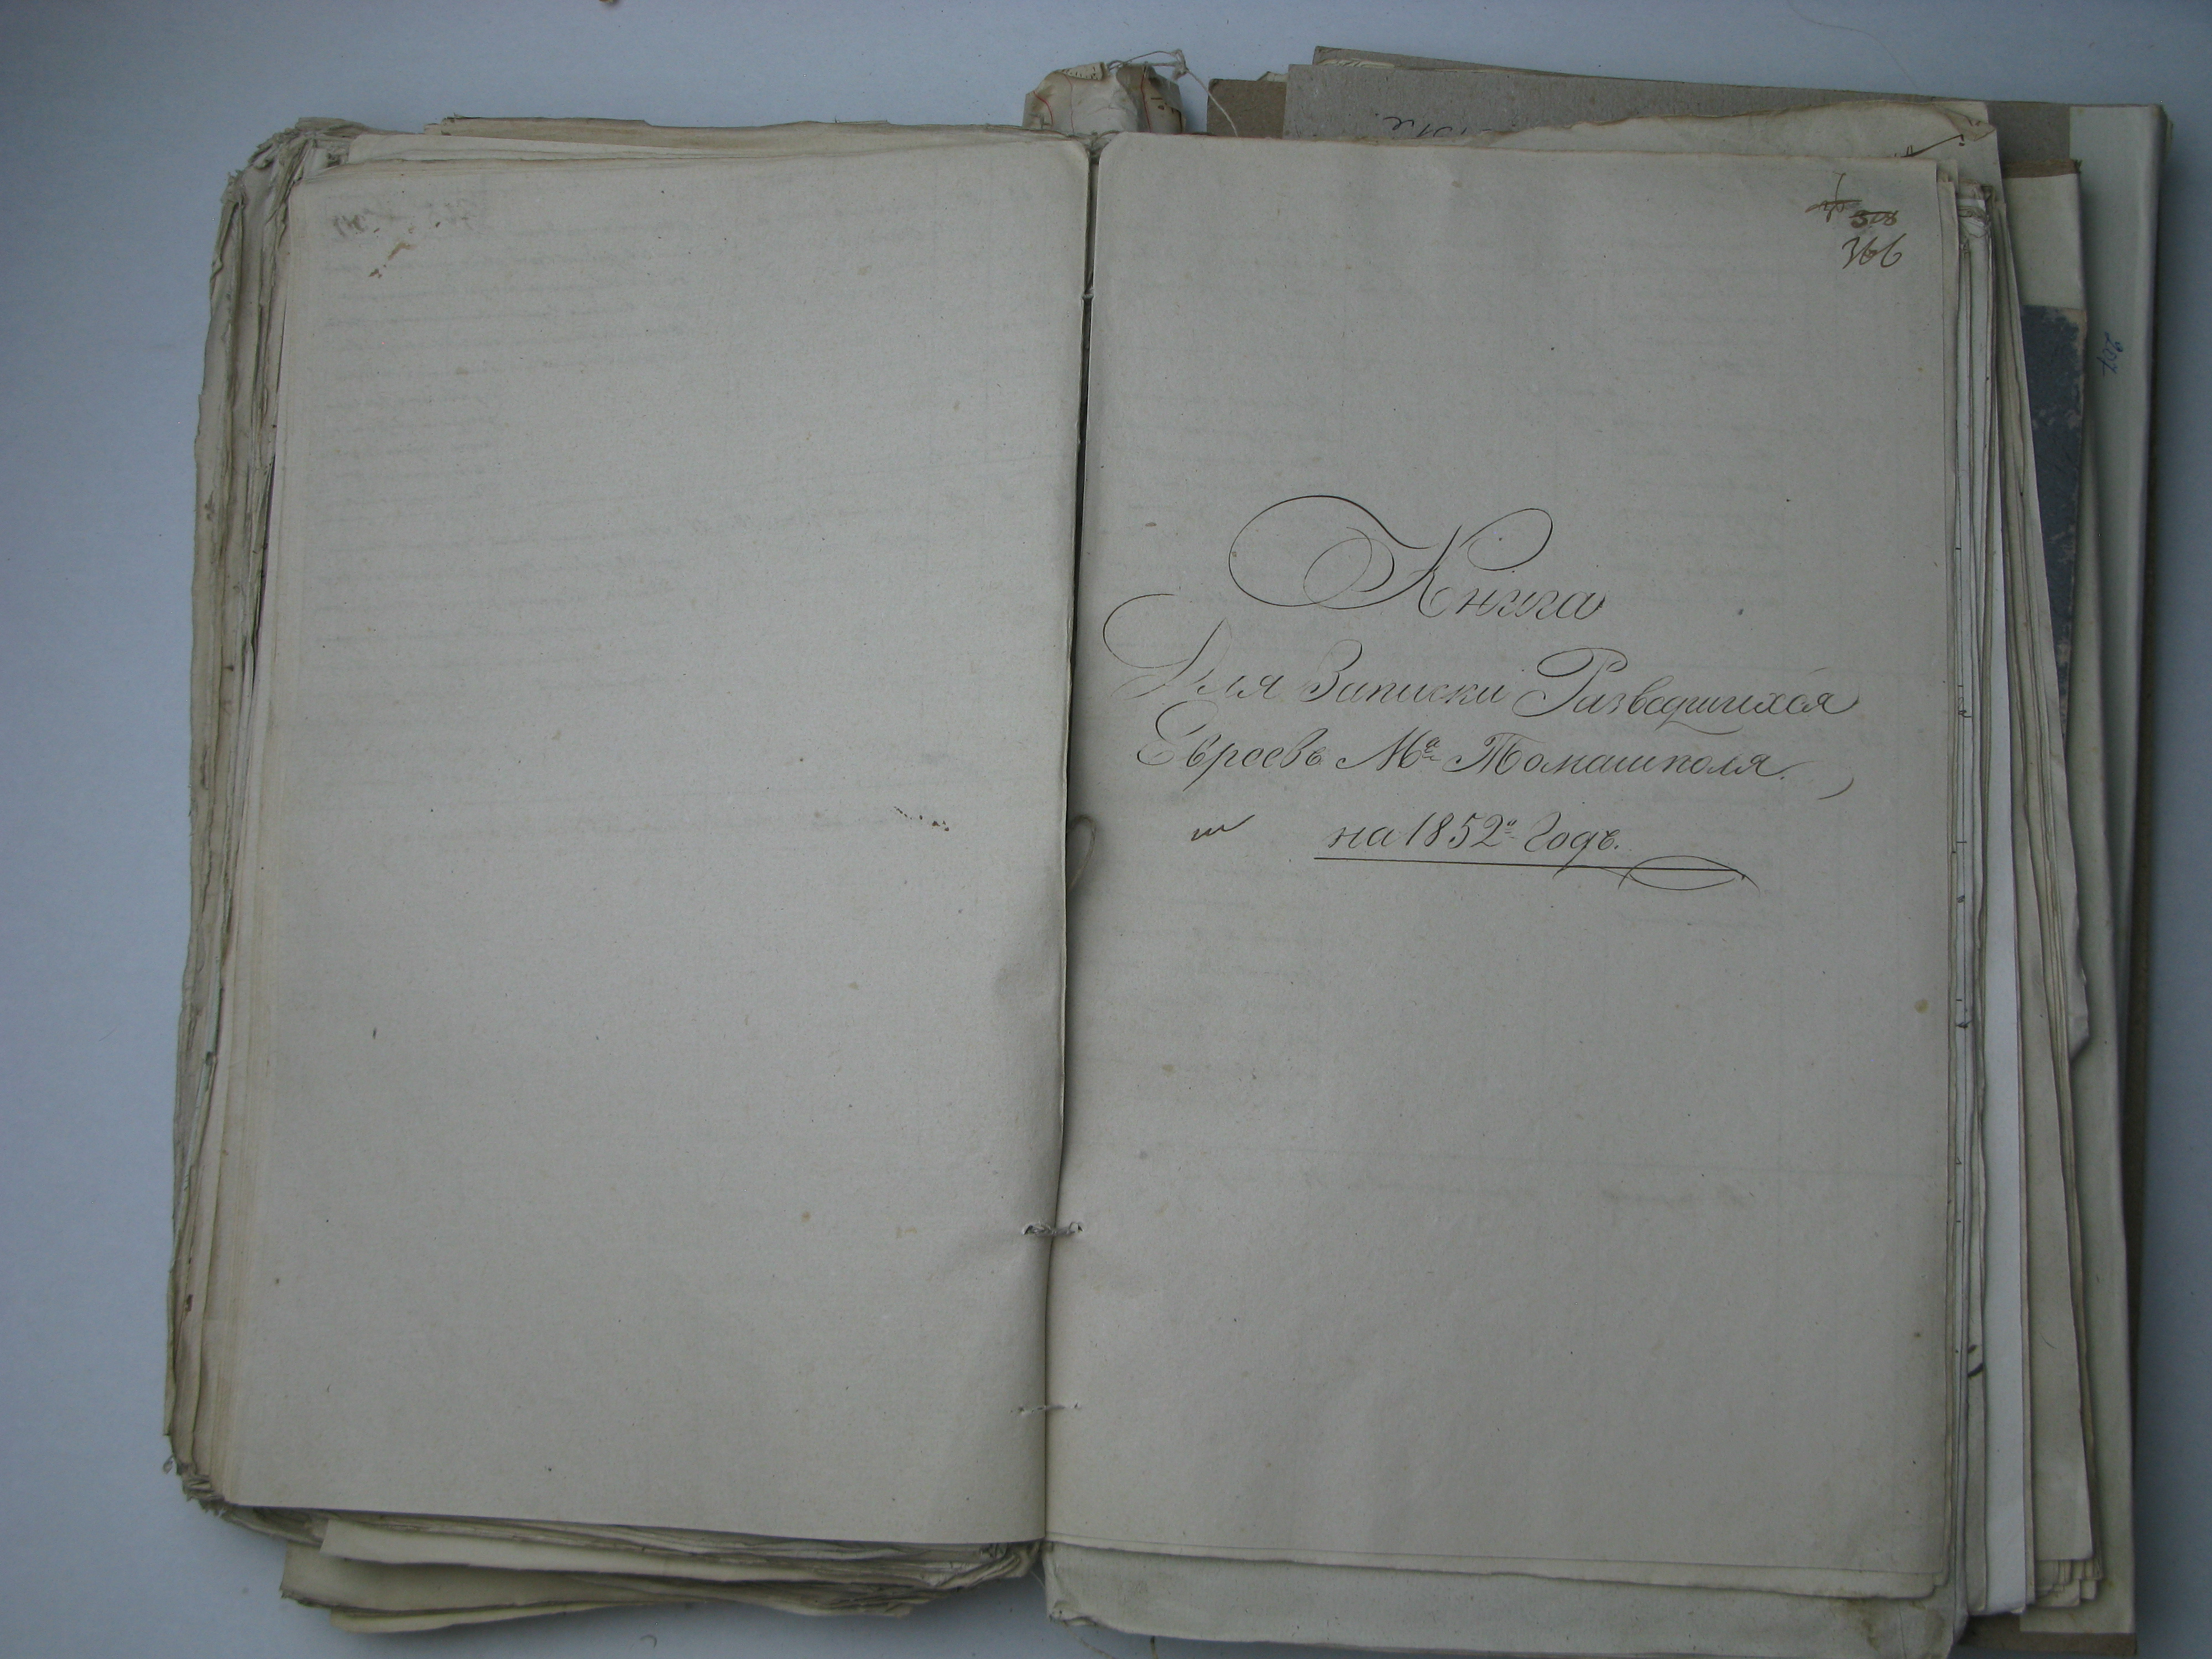 366
Книга
Для Записки Разведшихся
Евреевъ Мª Томашполя.
на 1852º Годъ.
207